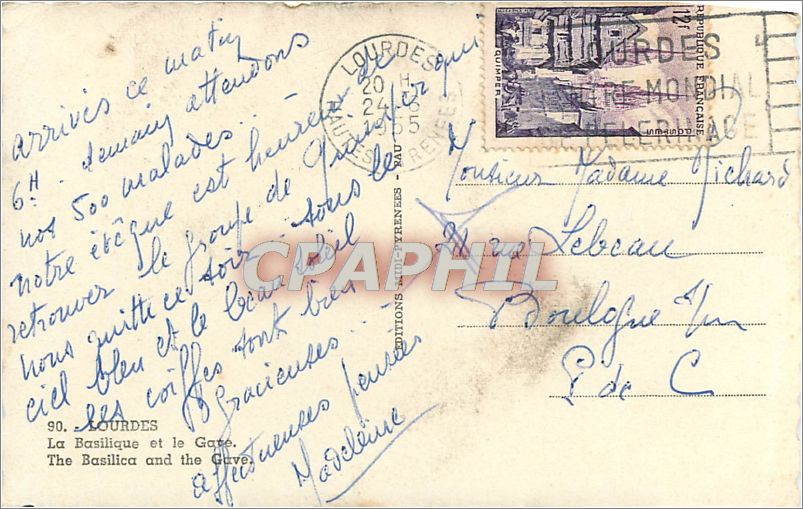 arrivés ce matin
6H. demain attendons
nos 500 malades..
notre évêque est heureux de
retrouver le groupe de Quimper qui
nous quitte ce soir. sous le
ciel bleu et le beau soleil
les coiffes sont bien
gracieuses..
affectueuses pensées
Madeleine
90. - LOURDES
La Basilique et le Gave.
The Basilica and the Gave.
EDITIONS MIDI-PYRENEES - PAU
LOURDES
20 H
24 - 5
1955
HAUTES PYRENEES
12f
REPUBLIQUE FRANÇAISE
QUIMPER
POSTES
LOURDES
CENTRE MONDIAL
DE PELERINAGE
Monsieur Madame Richard
rue Lebeau
Boulogne s/m
P. de C
CPAPHIL